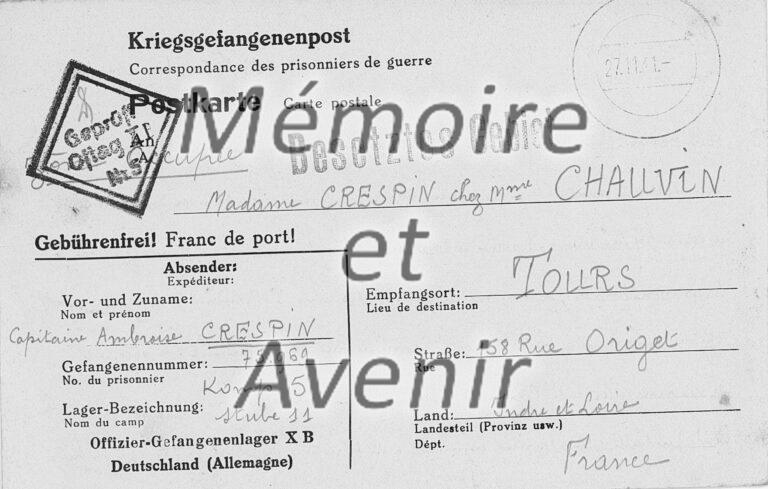 Kriegsgefangenenpost
Correspondance des prisonniers de guerre
27.11.41.-
Postkarte Carte postale
Geprüft
Oflag
Nr 5
An
A
Occupée
Besetztes Gebiet
Madame CRESPIN chez Mme CHAUVIN
Gebührenfrei! Franc de port!
Absender:
Expéditeur:
Vor- und Zuname:
Nom et prénom
Capitaine Ambroise CRESPIN
Gefangenennummer: 75.961
No. du prisonnier
Lager-Bezeichnung:
Nom du camp
Stube 11
Offizier-Gefangenenlager X B
Deutschland (Allemagne)
Empfangsort: TOURS
Lieu de destination
Straße: 158 Rue Origet
Rue
Land: Indre et Loire
Landesteil (Provinz usw.)
Dépt.
France
Mémoire
et
Avenir